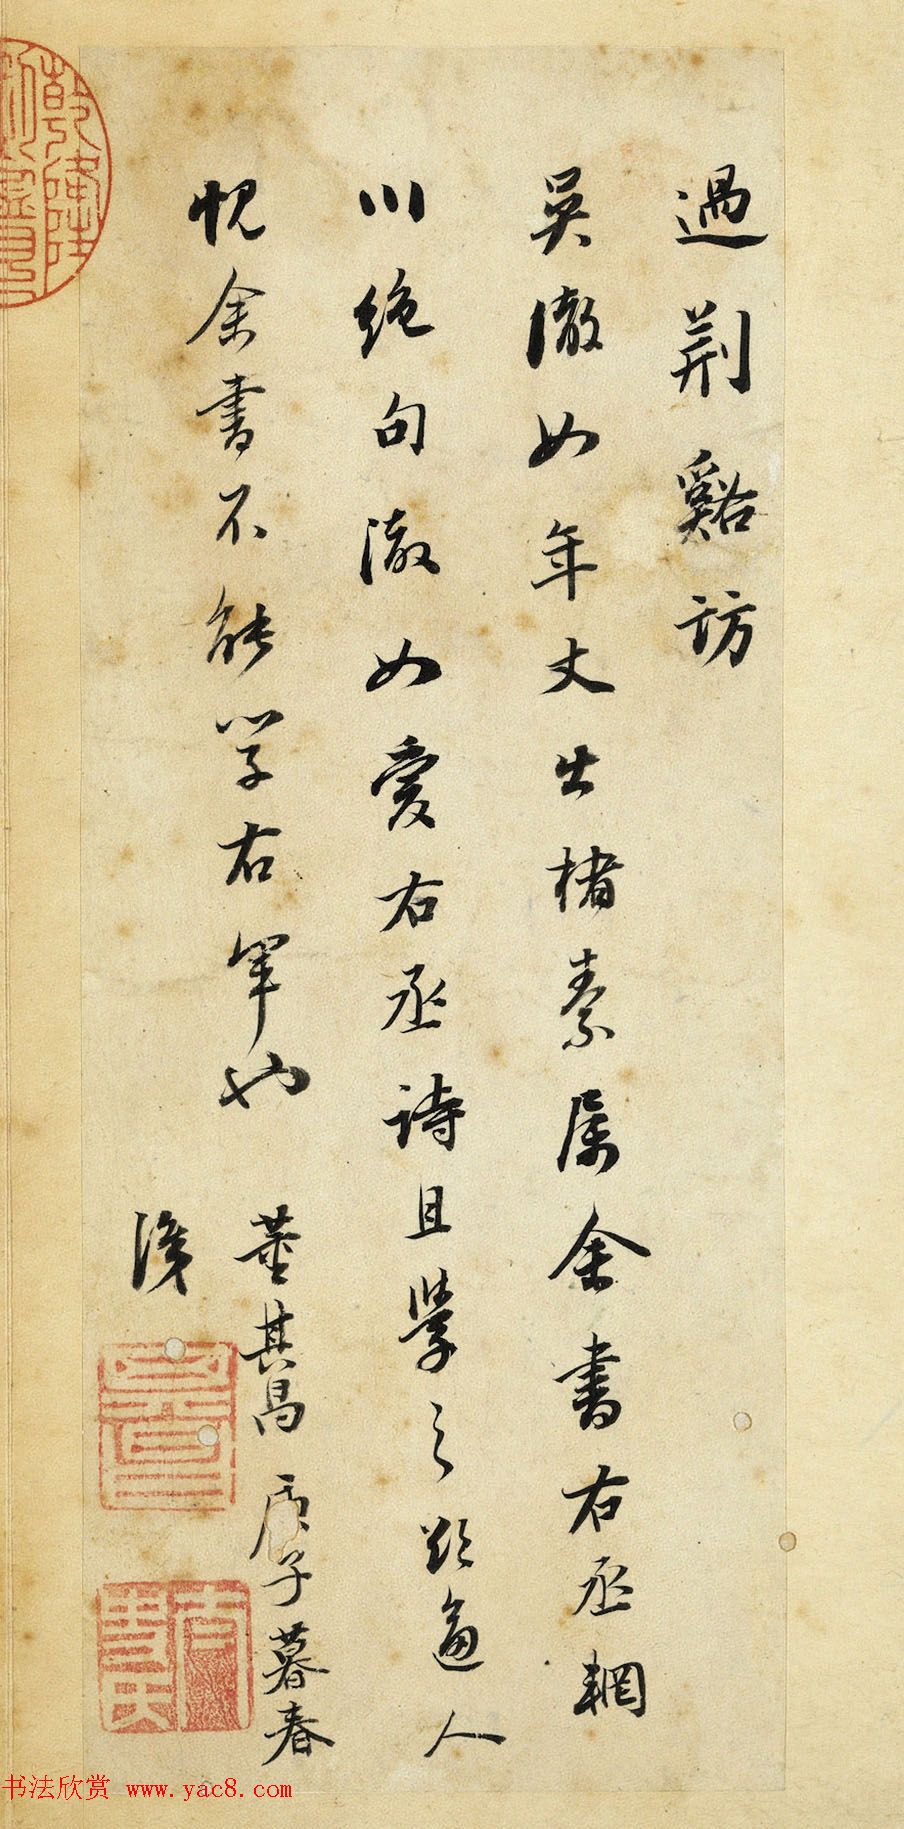 過荆谿訪
吳澈如年丈出楮素属余書右丞輞
川絶句澈如愛右丞詩且學之欲逼人
愧余書不能学右軍也
董其昌庚子暮春
識
乾隆
書法欣赏 www.yac8.com